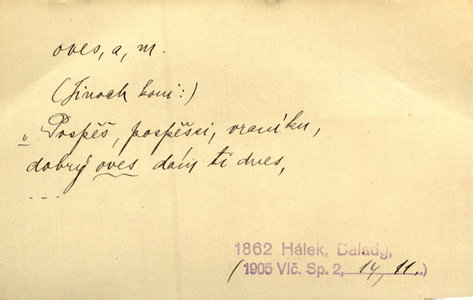 oves, a, m.
(Jinoch koni:)
„Pospěš, pospěšsi, vraníku,
dobrý oves dám ti dnes,
....
1862 Hálek, Balady,
(1905 Vlč. Sp. 2, 14, 11.)